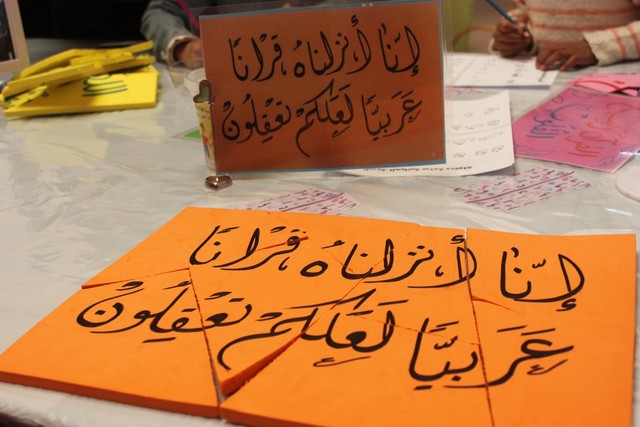 إنّا أنزلناه قرانا
عَرَبيًّا لَعَلكمْ تعْقِلُونْ
إنّا أنزلناهُ قرْانا
عَرَبيًّا لَعَلكمْ تعْقِلُونْ